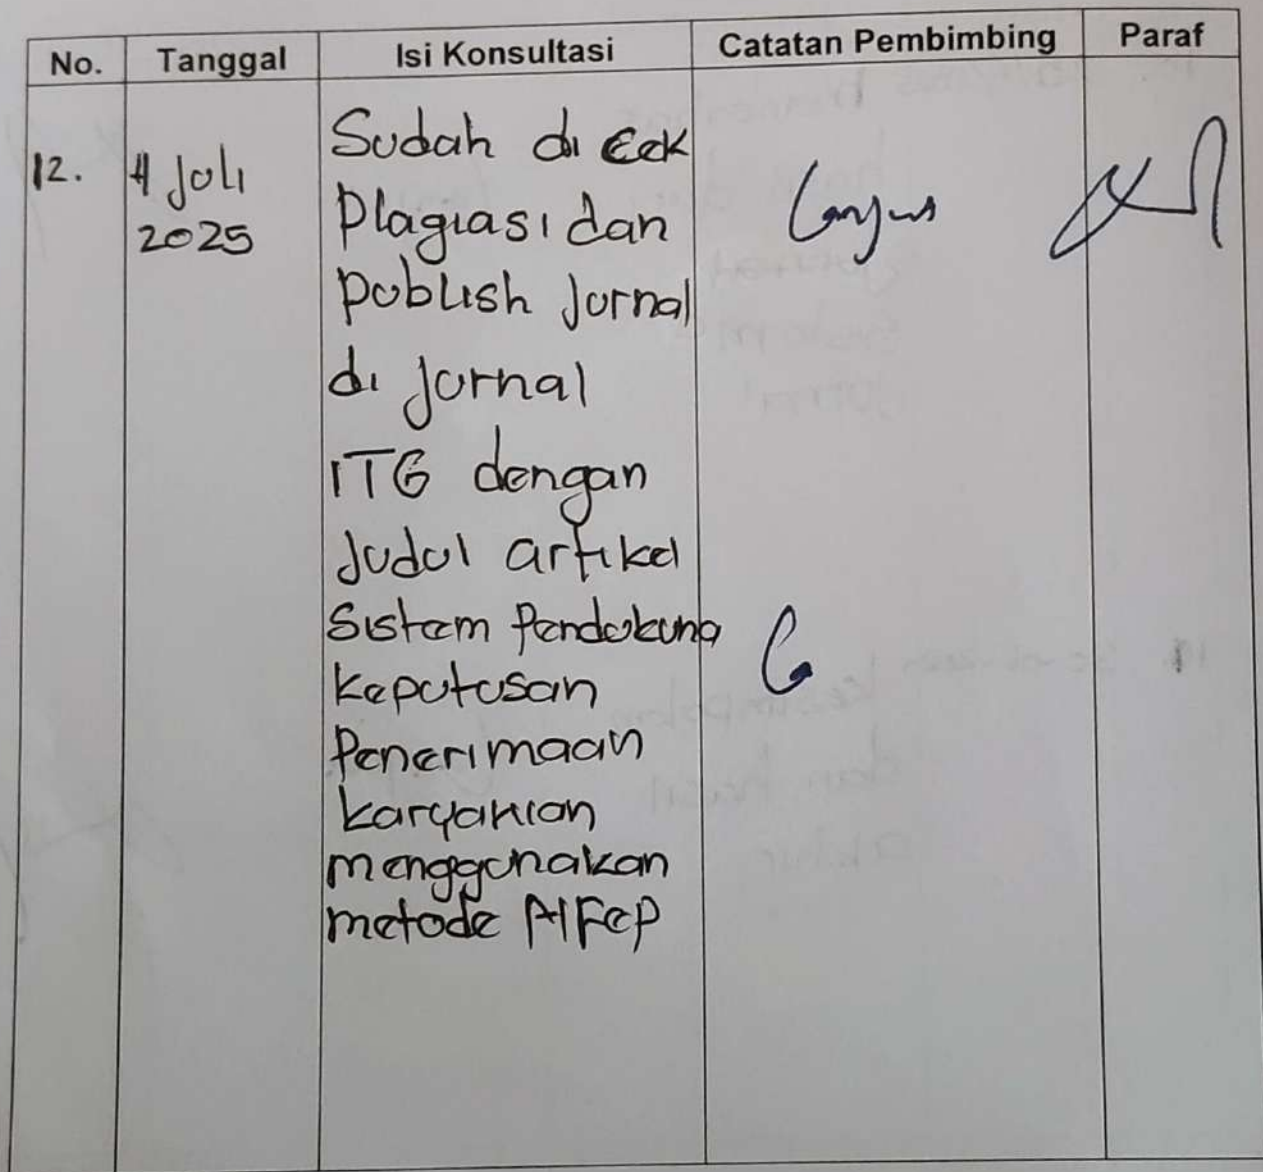 No. Tanggal Isi Konsultasi Catatan Pembimbing Paraf
12. 4 Juli 2025
Sudah di cek
Plagiasi dan
publish Jurnal
di Jurnal
ITG dengan
Judul artikel
Sistem Pendukung
keputusan
Penerimaan
karyawan
menggunakan
metode